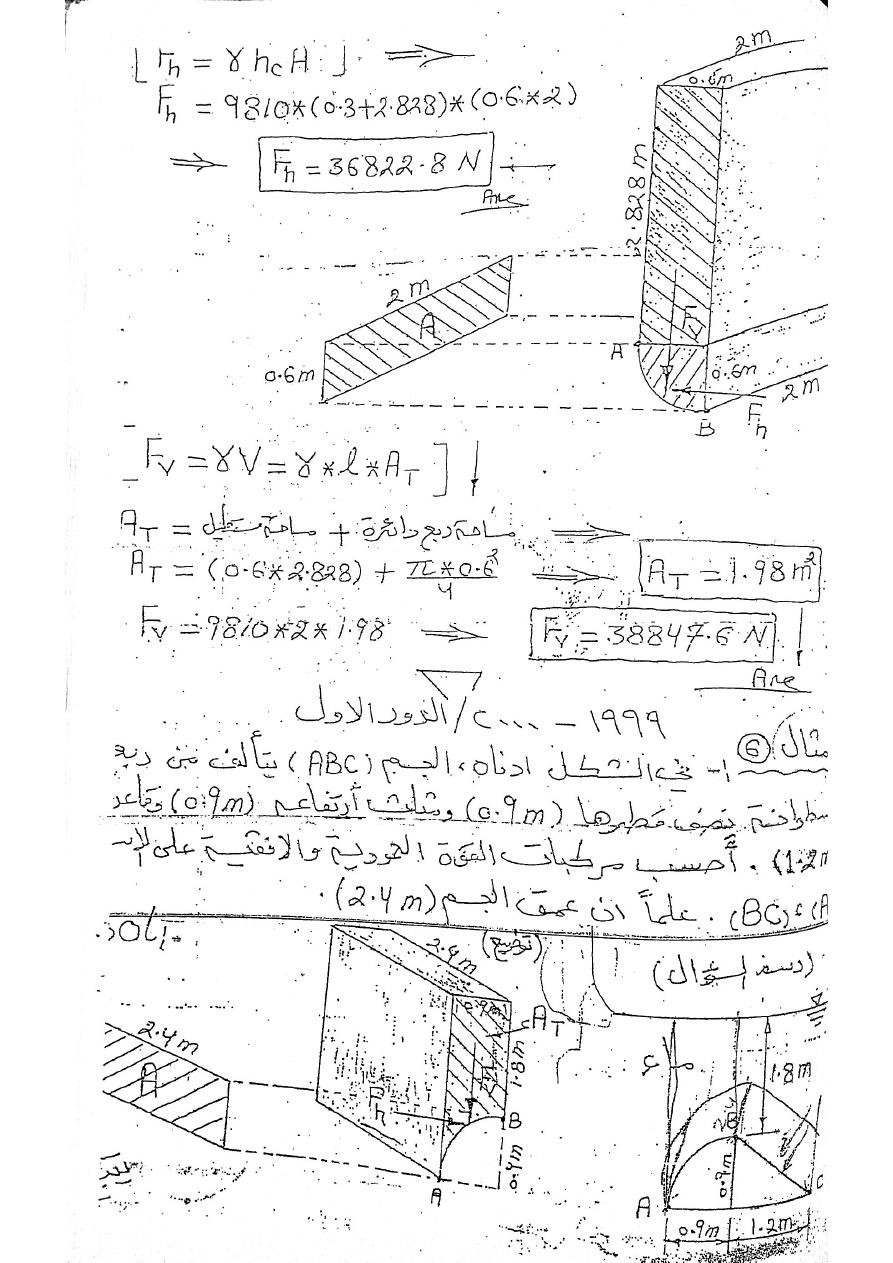 [Fh = γ hc A] ⇒
Fh = 9810*(0.3+2.828)*(0.6*2)
⇒ Fh = 36822.8 N ←
Ans
2m
0.6m
2.828 m
2m
A
0.6m
A
Fv
0.6m
Fh
2m
B
Fv = γV = γ*l*AT] ↓
AT = مساحة مستطيل + مساحة ربع دائرة ⇒
AT = (0.6*2.828) + π*0.6²/4 ⇒ AT = 1.98 m²
Fv = 9810*2*1.98 ⇒ Fv = 38847.6 N ↓
Ans
١٩٩٩ - ٢٠٠٠ / الدور الاول
مثال ⑥ ١- في الشكل ادناه، الجسم (ABC) يتألف من ربع
نصف قطرها (0.9m) ومثلث أرتفاعه (0.9m) وقاعد
(1.2m . أحسب مركبات القوة العمودية والافقية على
(BC) . علماً ان عمق الجسم (2.4 m).
Sol.
(توضيح)
(رسم السؤال)
2.4m
0.9m
AT
1.8m
2.4m
A
Fh
Fv
B
0.9m
A
1.8m
B
0.9m
A
C
0.9m
1.2m